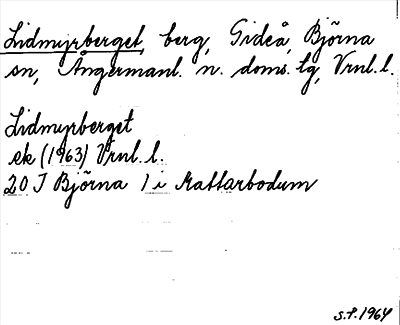 Lidmyrberget, berg, Gideå, Björna
sn, Ångermanl. n. doms. lg, Vrnl. l.
Lidmyrberget
ek (1963) Vrnl. l.
20 J Björna 1 i Kattarbodum
S.P. 1964